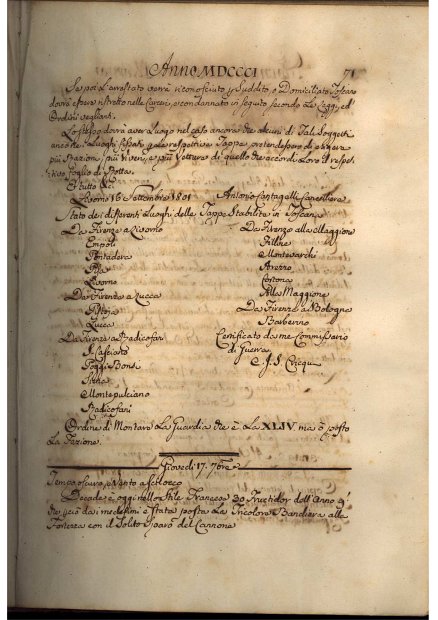 Anno MDCCCI
71
Se poi l'arrestato verrà riconosciuto p Suddito, o Domiciliato Toscano
dovrà essere ristretto nelle Carceri, e condannato in seguito secondo le Leggi, ed
Ordini veglianti.
Lo stesso dovrà aver luogo nel caso ancora che alcuni di Tali Soggetti
anco ne' Luoghi fissati p le respettive Tappe, pretendessero di esigere
più Razioni, più Viveri, e più Vetture di quello che accordi Loro il respet-
tivo foglio di Rotta.
E tutto &c.
Livorno 16 Settembre 1801
Antonio Cancelliere
Stato dei differenti Luoghi delle Tappe Stabilite in Toscana
Da Firenze a Livorno
Empoli
Pontadera
Pisa
Livorno
Da Firenze a Lucca
Pistoja
Lucca
Da Firenze a Radicofani
S. Casciano
Poggi Bonsi
Siena
Montepulciano
Radicofani
Da Firenze alla Maggione
Montevarchi
Arezzo
Cortona
Alla Maggione
Da Firenze a Bologna
Barberino
Certificato da me Commissario
di Guerra
Ordine di Montare la Guardia che è la XLIV ma è posto
la Fazione.
Giovedì 17. 7bre
Tempo oscuro, e Vento a Scilocco
Decade è oggi nello Stile Francese 30 Fructidor dell'Anno 9°
che p ciò da i medesimi è stata posta la Tricolore Bandiera alla
Fortezza con il Solito Sparo del Cannone